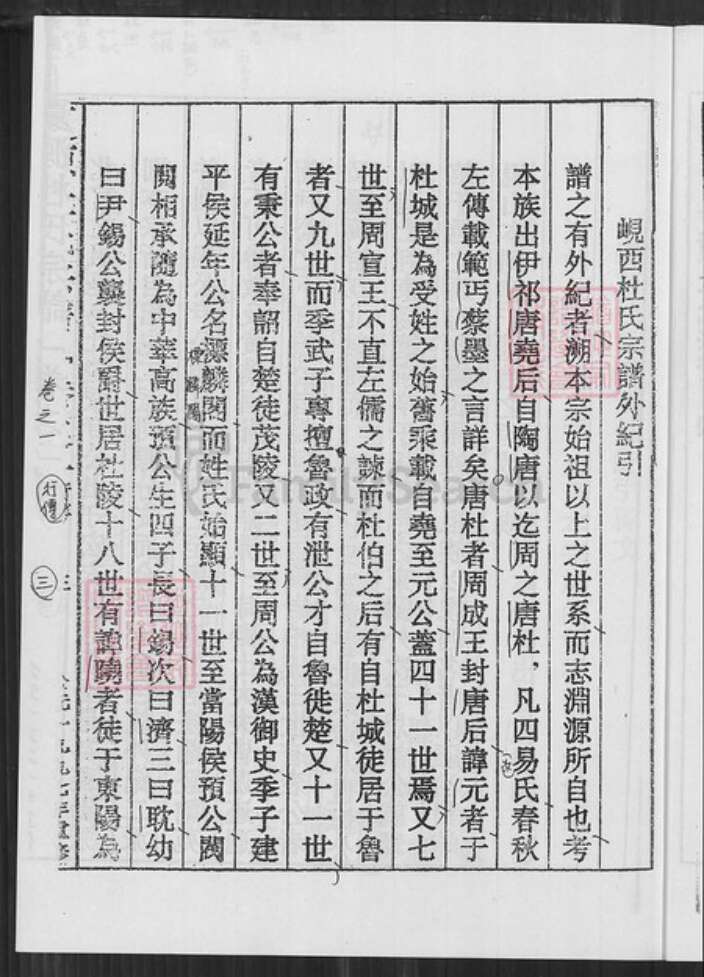 峴西杜氏宗譜外紀引
譜之有外紀者溯本宗始祖以上之世系而志淵源所自也考
本族出伊祁唐堯后自陶唐以迄周之唐杜，凡四易氏春秋
左傳載範丐蔡墨之言詳矣唐杜者周成王封唐后諱元者于
杜城是為受姓之始舊乘載自堯至元公蓋四十一世焉又七
世至周宣王不直左儒之諫而杜伯之后有自杜城徒居于魯
者又九世而季武子專擅魯政有泄公才自魯徙楚又十一世
有秉公者奉詔自楚徒茂陵又二世至周公為漢御史季子建
平侯延年公名漂麟閣而姓氏始顯十一世至當陽侯預公閥
閱相承隨為中華高族預公生四子長曰錫次曰濟三曰耽幼
曰尹錫公襲封侯爵世居杜陵十八世有諱曉者徒于東陽為
卷之一
行傳
三